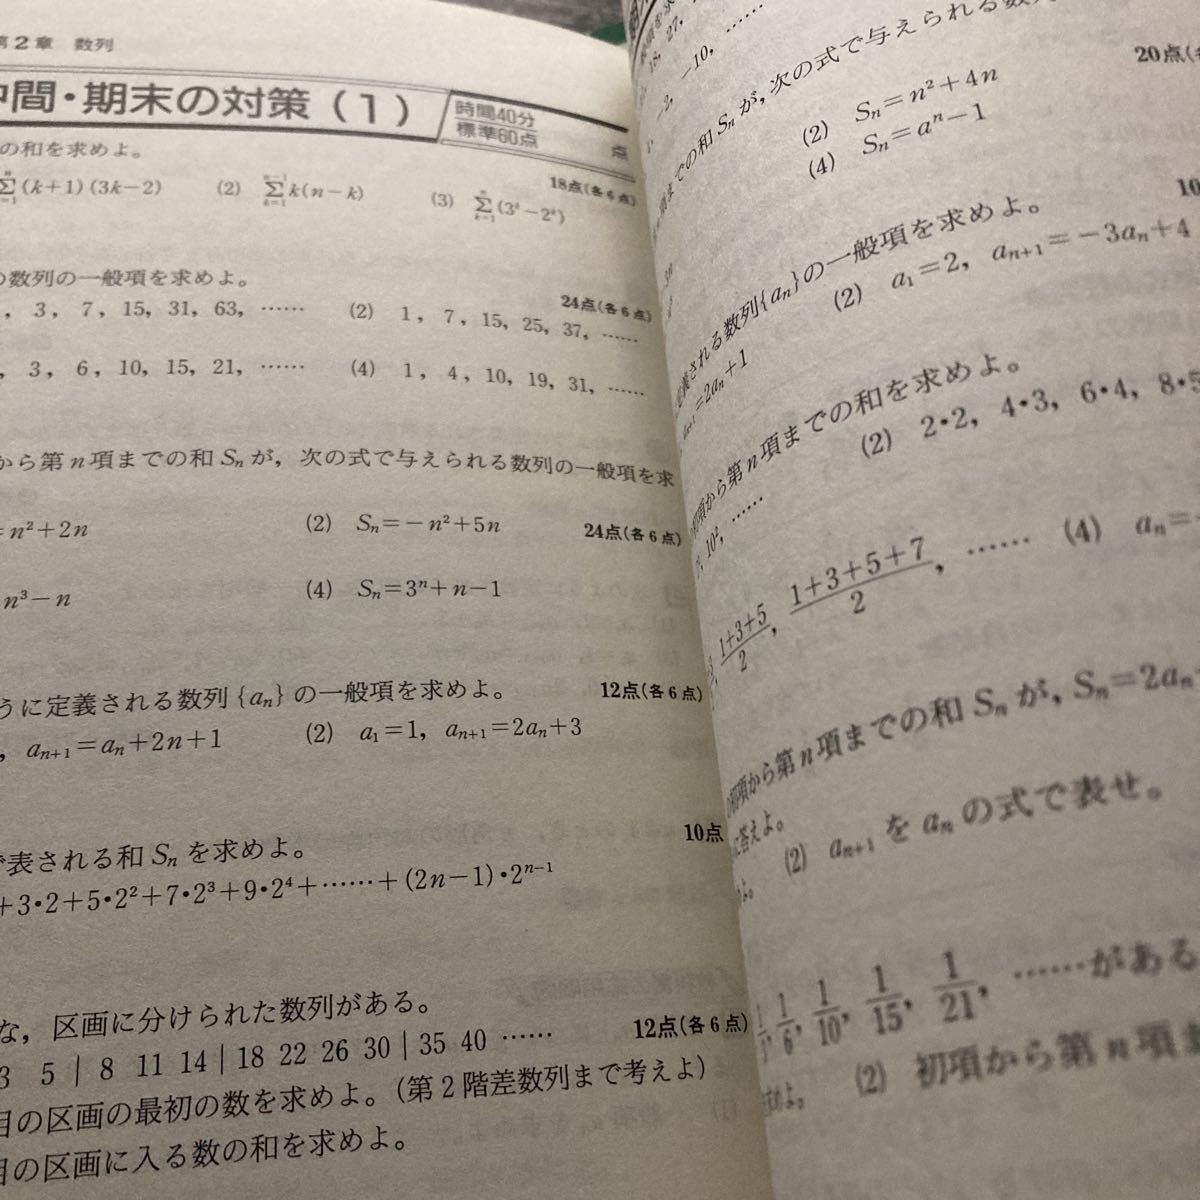 第2章 数列
中間・期末の対策(1)
時間40分
標準60点
点
の和を求めよ。
18点(各6点)
(k+1)(3k−2) (2) Σk(n−k) (3) Σ(3ᵏ−2ᵏ)
の数列の一般項を求めよ。
24点(各6点)
, 3, 7, 15, 31, 63, …… (2) 1, 7, 15, 25, 37, ……
, 3, 6, 10, 15, 21, …… (4) 1, 4, 10, 19, 31, ……
から第n項までの和Sₙが,次の式で与えられる数列の一般項を求
24点(各6点)
=n²+2n (2) Sₙ=−n²+5n
n³−n (4) Sₙ=3ⁿ+n−1
うに定義される数列{aₙ}の一般項を求めよ。
12点(各6点)
, aₙ₊₁=aₙ+2n+1 (2) a₁=1, aₙ₊₁=2aₙ+3
で表される和Sₙを求めよ。
10点
+3・2+5・2²+7・2³+9・2⁴+……+(2n−1)・2ⁿ⁻¹
な,区画に分けられた数列がある。
12点(各6点)
3 5 | 8 11 14 | 18 22 26 30 | 35 40 ……
目の区画の最初の数を求めよ。(第2階差数列まで考えよ)
目の区画に入る数の和を求めよ。
18, 27,
−2, −10, ……
までの和Sₙが,次の式で与えられる数
20点(各
(2) Sₙ=n²+4n
(4) Sₙ=aⁿ−1
定義される数列{aₙ}の一般項を求めよ。
10
=2aₙ+1 (2) a₁=2, aₙ₊₁=−3aₙ+4
初項から第n項までの和を求めよ。
10², …… (2) 2・2, 4・3, 6・4, 8・5
(1+3+5)/2, (1+3+5+7)/2, …… (4) aₙ=
初項から第n項までの和Sₙが, Sₙ=2aₙ
に答えよ。
(2) aₙ₊₁をaₙの式で表せ。
1/6, 1/10, 1/15, 1/21, ……がある
(2) 初項から第n項ま